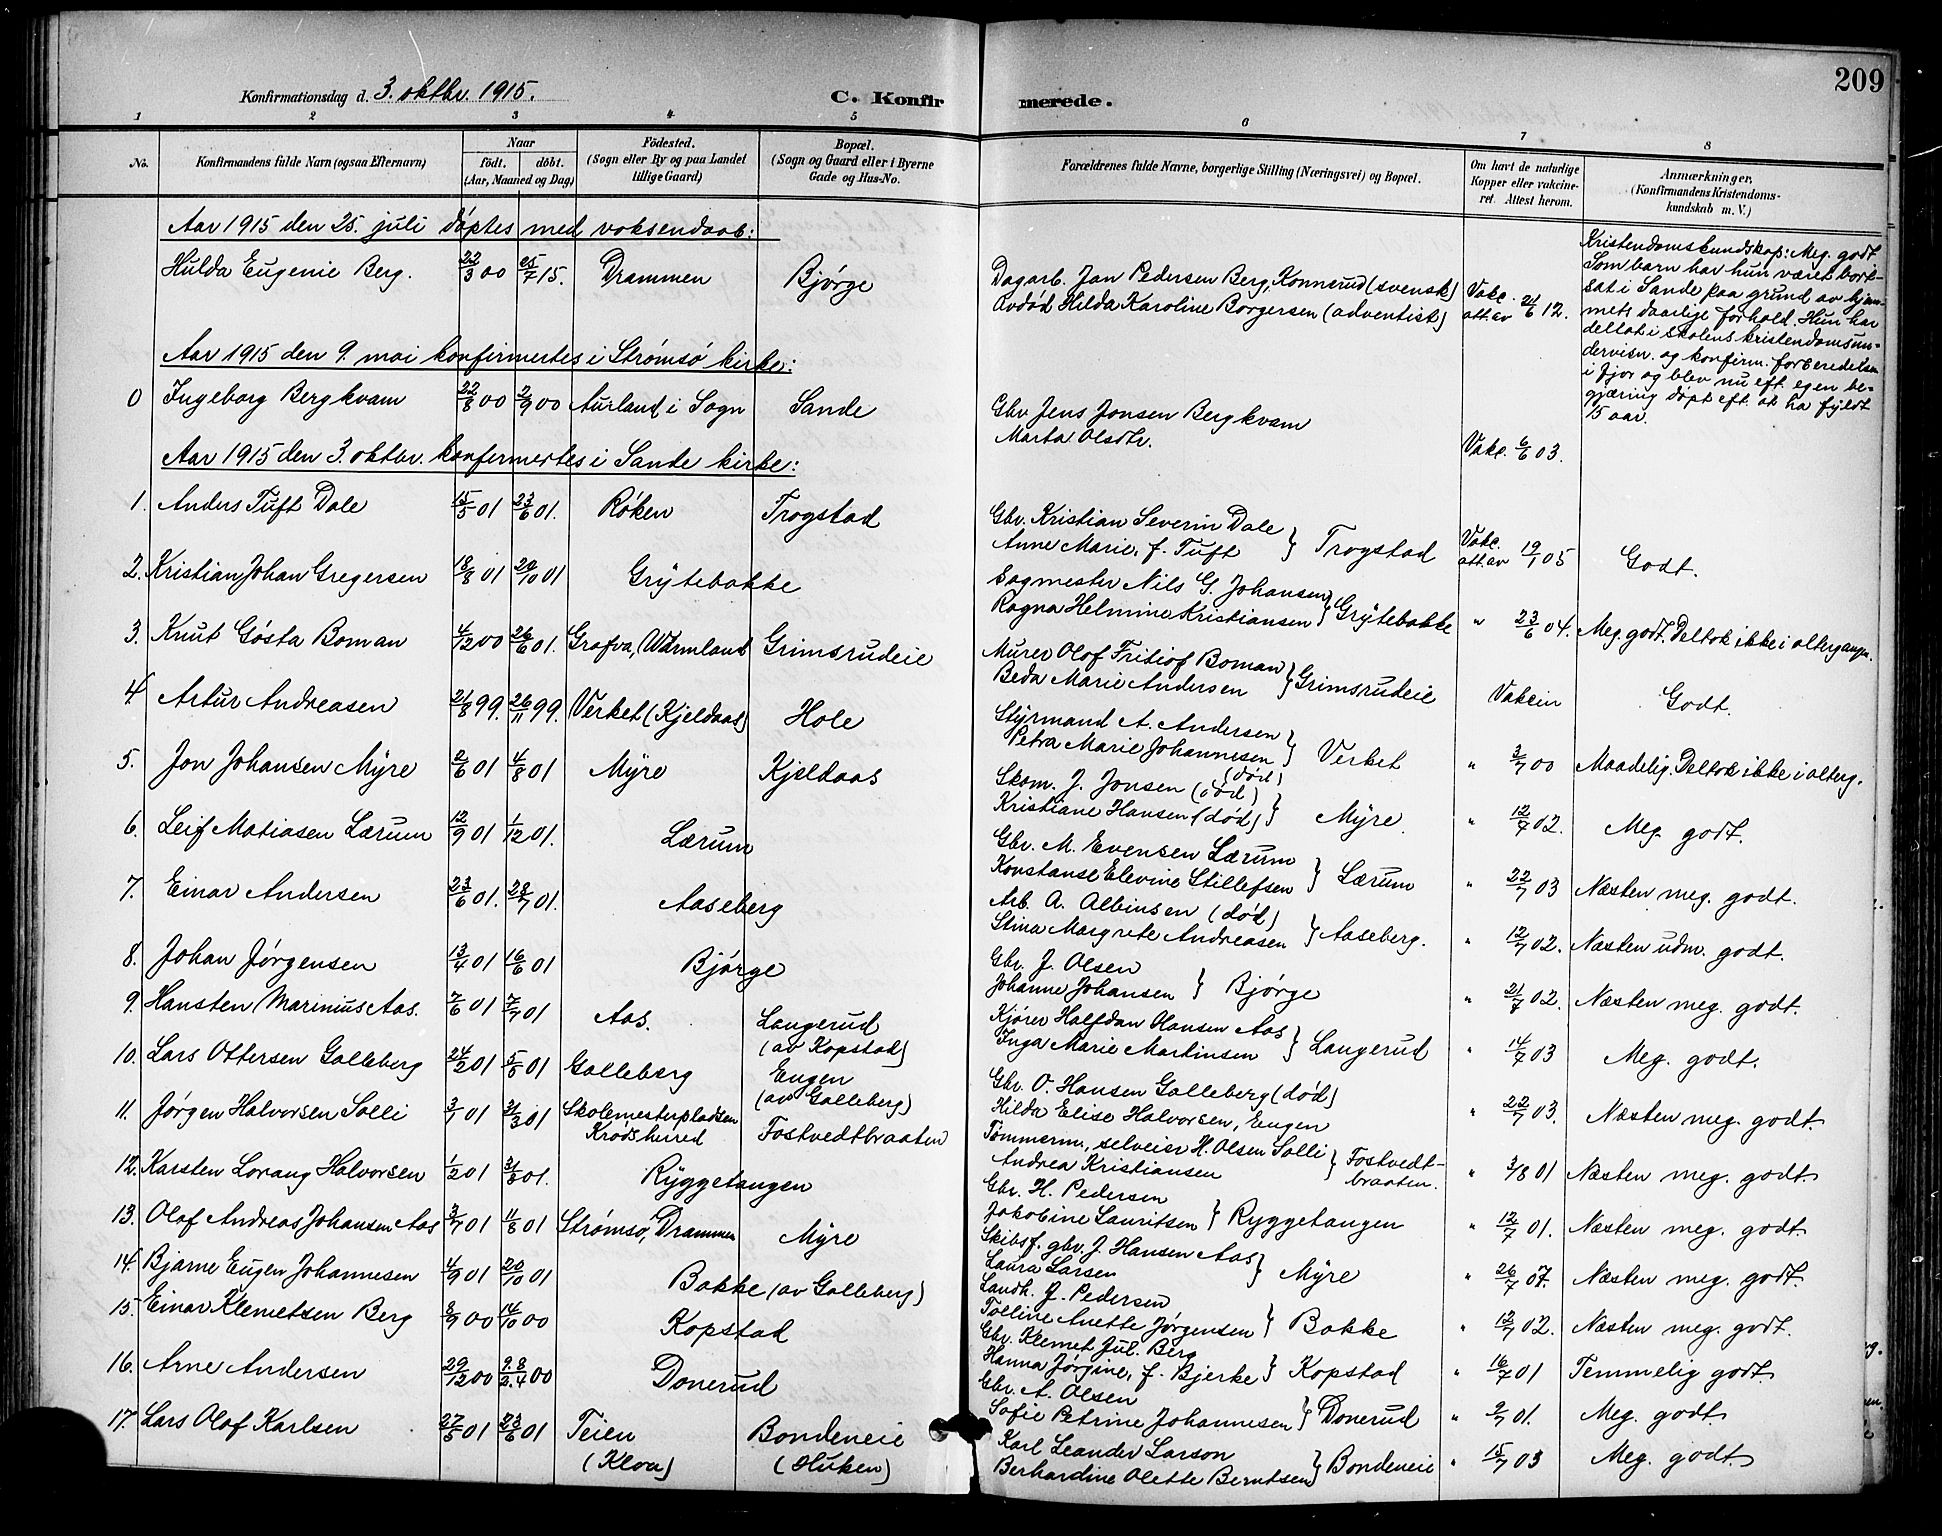 209
Konfirmationsdag d. 3. oktbr. 1915.
C. Konfirmerede.
1 2 3 4 5 6 7 8
No.
Konfirmandens fulde Navn (ogsaa Efternavn)
Naar
födt. döbt.
(Aar, Maaned og Dag)
Födested.
(Sogn eller By og paa Landet
tillige Gaard)
Bopæl.
(Sogn og Gaard eller i Byerne
Gade og Hus-No.
Forældrenes fulde Navne, borgerlige Stilling (Næringsvei) og Bopæl.
Om havt de naturlige
Kopper eller vakcine-
ret. Attest herom.
Anmærkninger,
(Konfirmandens Kristendoms-
kundskab m. V.)
Aar 1915 den 25. juli døptes med voksendaab:
Hulda Eugenie Berg. 22/3 00 25/7 15. Drammen Bjørge
Dagarb. Jan Pedersen Berg, Konnerud (svensk)
Avdød Hilda Karoline Borgersen (adventist)
Vakc.
att. av 21/6 12.
Kristendomskundskap: Meg. godt
Som barn har hun været bort-
sat i Sande paa grund av hjem-
mets daarlige forhold. Hun har
deltat i skolens kristendomsun-
dervisn. og konfirm. forberedelsen
i fjor og blev nu eft. egen be-
gjæring døpt eft. at ha fyldt
15 aar.
Aar 1915 den 9. mai konfirmertes i Strømsø kirke:
0 Ingeborg Bergkvam 22/8 00 2/9 00 Aurland i Sogn Sande
Gbr Jens Jonsen Bergkvam
Marta Olsdtr.
Vakc. 6/6 03.
Aar 1915 den 3. oktbr. konfirmertes i Sande kirke:
1. Anders Tuft Dale 15/5 01 23/6 01. Røken Trogstad
Gbr. Kristian Severin Dale
Anne Marie, f. Tuft } Trogstad
Vakc.
att. av 19/7 05 Godt.
2. Kristian Johan Gregersen 18/8 01 20/10 01 Grytebakke
Sagmester Nils G. Johansen
Ragna Helmine Kristiansen } Grytebakke " 23/6 04. Meg. godt. Deltok ikke i altergangn.
3. Knut Gøsta Boman 4/12 00 26/6 01. Grafva, Wärmland Grimsrudeie
Murer Olof Fritiof Boman
Beda Marie Andersen } Grimsrudeie Vakcin Godt.
4. Artur Andreasen 21/8 99. 26/11 99. Verket (Kjeldaas) Hole
Styrmand A. Andersen
Petra Marie Johannesen (død) } Verket " 3/7 00 Maadelig. Deltok ikke i alterg.
5. Jon Johansen Myre 2/6 01 4/8 01 Myre Kjeldaas
Skom. J. Jonsen (død)
Kristiane Hansen (død) } Myre. " 12/7 02. Meg. godt.
6. Leif Matiasen Lærum 12/9 01 1/12 01. Lærum
Gbr. M. Evensen Lærum
Konstanse Elevine Stillefsen } Lærum " 22/7 03 Næsten meg. godt.
7. Einar Andersen 23/6 01. 28/7 01. Aaseberg
Arb. A. Albinsen (død)
Stina Margrete Andreasen } Aaseberg. " 12/7 02. Næsten udm. godt.
8. Johan Jørgensen 13/4 01 16/6 01 Bjørge
Gbr. J. Olsen
Johanne Johansen } Bjørge " 21/7 02. Næsten meg. godt.
9. Hansten Marinius Aas. 7/6 01 7/7 01 Aas. Langerud
(av Kopstad)
Kjører Halfdan Hansen Aas
Inga Marie Martinsen } Langerud " 14/7 03 Meg. godt.
10. Lars Ottersen Galleberg 24/2 01 5/5 01 Galleberg Eugen
(av Galleberg)
Gbr. O. Hansen Galleberg (død)
Hilda Elise Halvorsen, Eugen " 22/7 03. Næsten meg. godt.
11. Jørgen Halvorsen Solli 3/1 01 31/3 01 Skolemesterpladsen
Krødsherred Fostvedtbraaten
Tømmerm., selveier H. Olsen Solli
Andrea Kristiansen } Fostvedt-
braaten. " 3/8 01 Næsten meg. godt.
12. Karsten Lorang Halvorsen 1/2 01 Ryggetangen
Gbr. H. Pedersen
Jakobine Lauritsen } Ryggetangen " 12/7 01. Næsten meg. godt.
13. Olaf Andreas Johansen Aas 3/7 01 11/8 01 Strømsø, Drammen Myre
Skibsf. gbr. J. Hansen Aas
Laura Larsen } Myre " 26/7 07. Næsten meg. godt.
14. Bjarne Eugen Johannesen 4/9 01 20/10 01 Bakke (av Galleberg)
Landh. J. Pedersen
Tolline Anette Jørgensen } Bakke " 12/7 02. Næsten meg. godt.
15. Einar Klemetsen Berg 8/9 00 14/10 00 Kopstad
Gbr. Klemet Jul. Berg
Hanna Jørgine, f. Bjerke } Kopstad " 16/7 01 Temmelig godt.
16. Arne Andersen 29/12 00 Donerud
Gbr. A. Olsen
Sofie Petrine Johannesen } Donerud " 2/7 01. Meg. godt
17. Lars Olaf Karlsen 27/5 01 23/6 01 Teien
(Kloa) Bondeneie
(Huken)
Karl Leander Larson
Berhardine Olette Berntsen } Bondeneie " 15/7 03 Meg. godt.